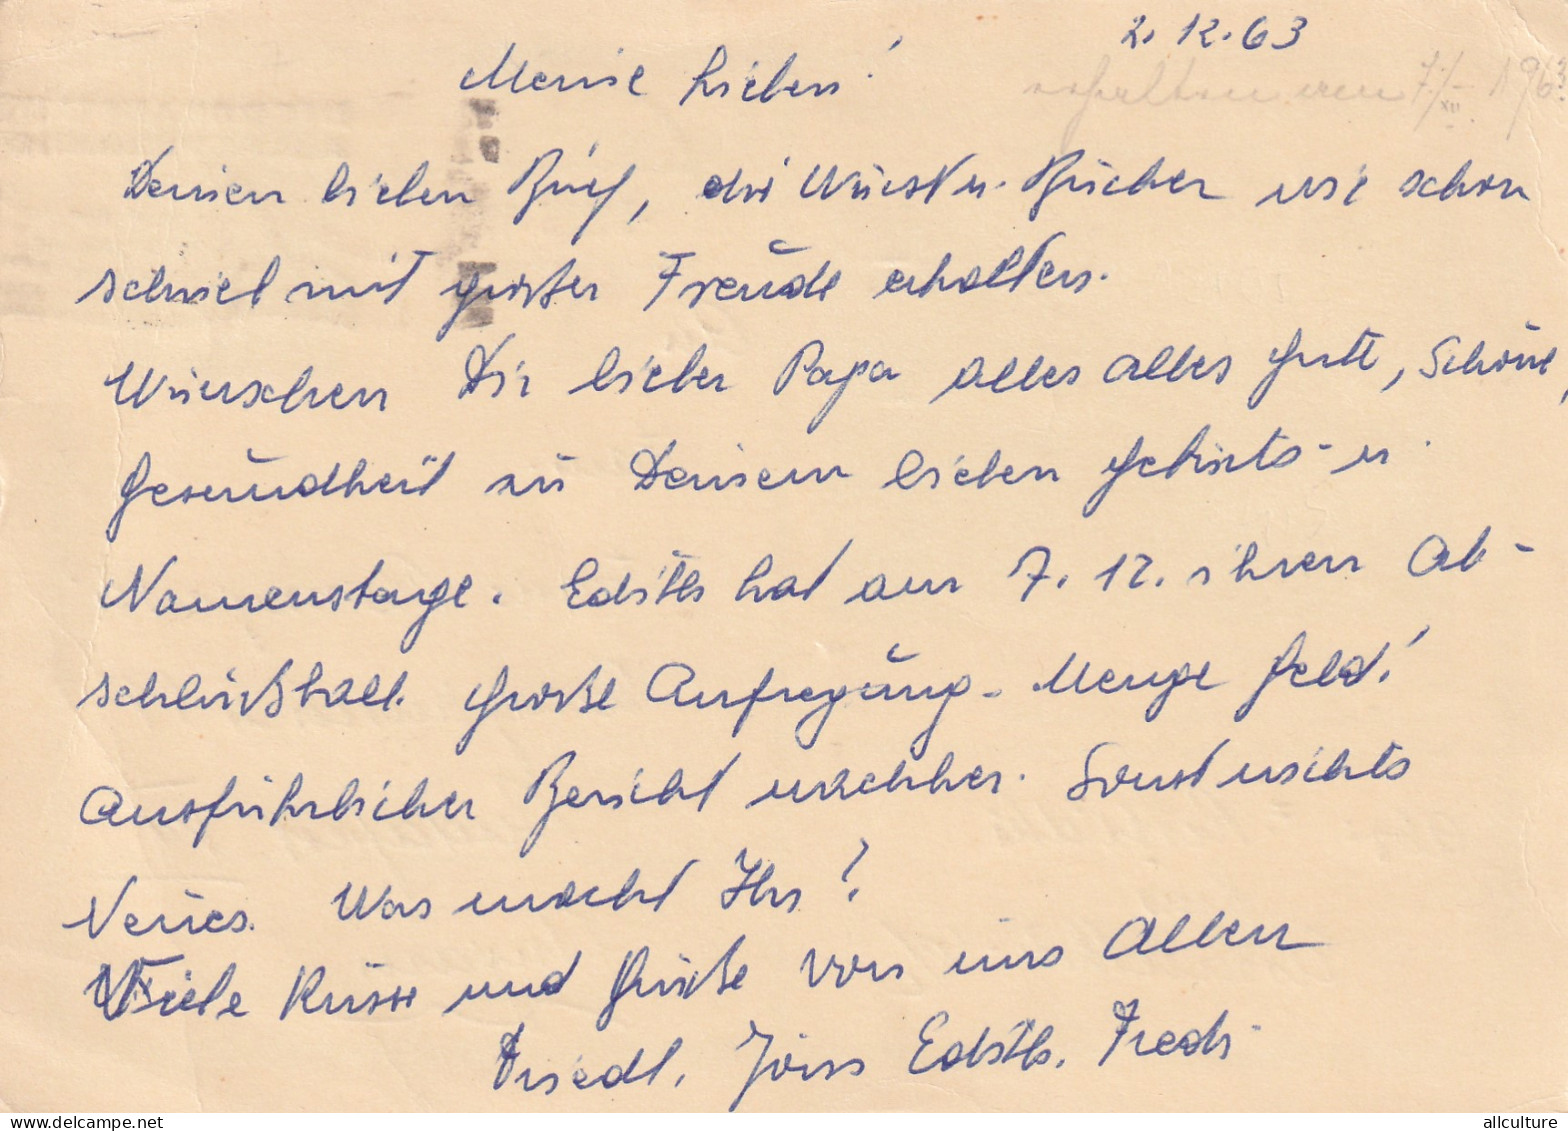 2. 12. 63
Meine Lieben!
erhalten am 7./XII 1963
Deinen lieben Brief, die Würst u. Bücher wie schon
schnell mit großer Freude erhalten.
Wünschen Dir lieber Papa alles alles Gute, Schöne,
Gesundheit zu Deinem lieben Geburts- u.
Namenstage. Edith hat am 7. 12. ihren Ab-
schlußball. Große Aufregung - Menge Geld!
Ausführlicher Bericht nachher. Sonst nichts
Neues. Was macht Ihr?
Viele Küsse und Grüße von uns Allen
Friedl, Edith, Fredi
allculture